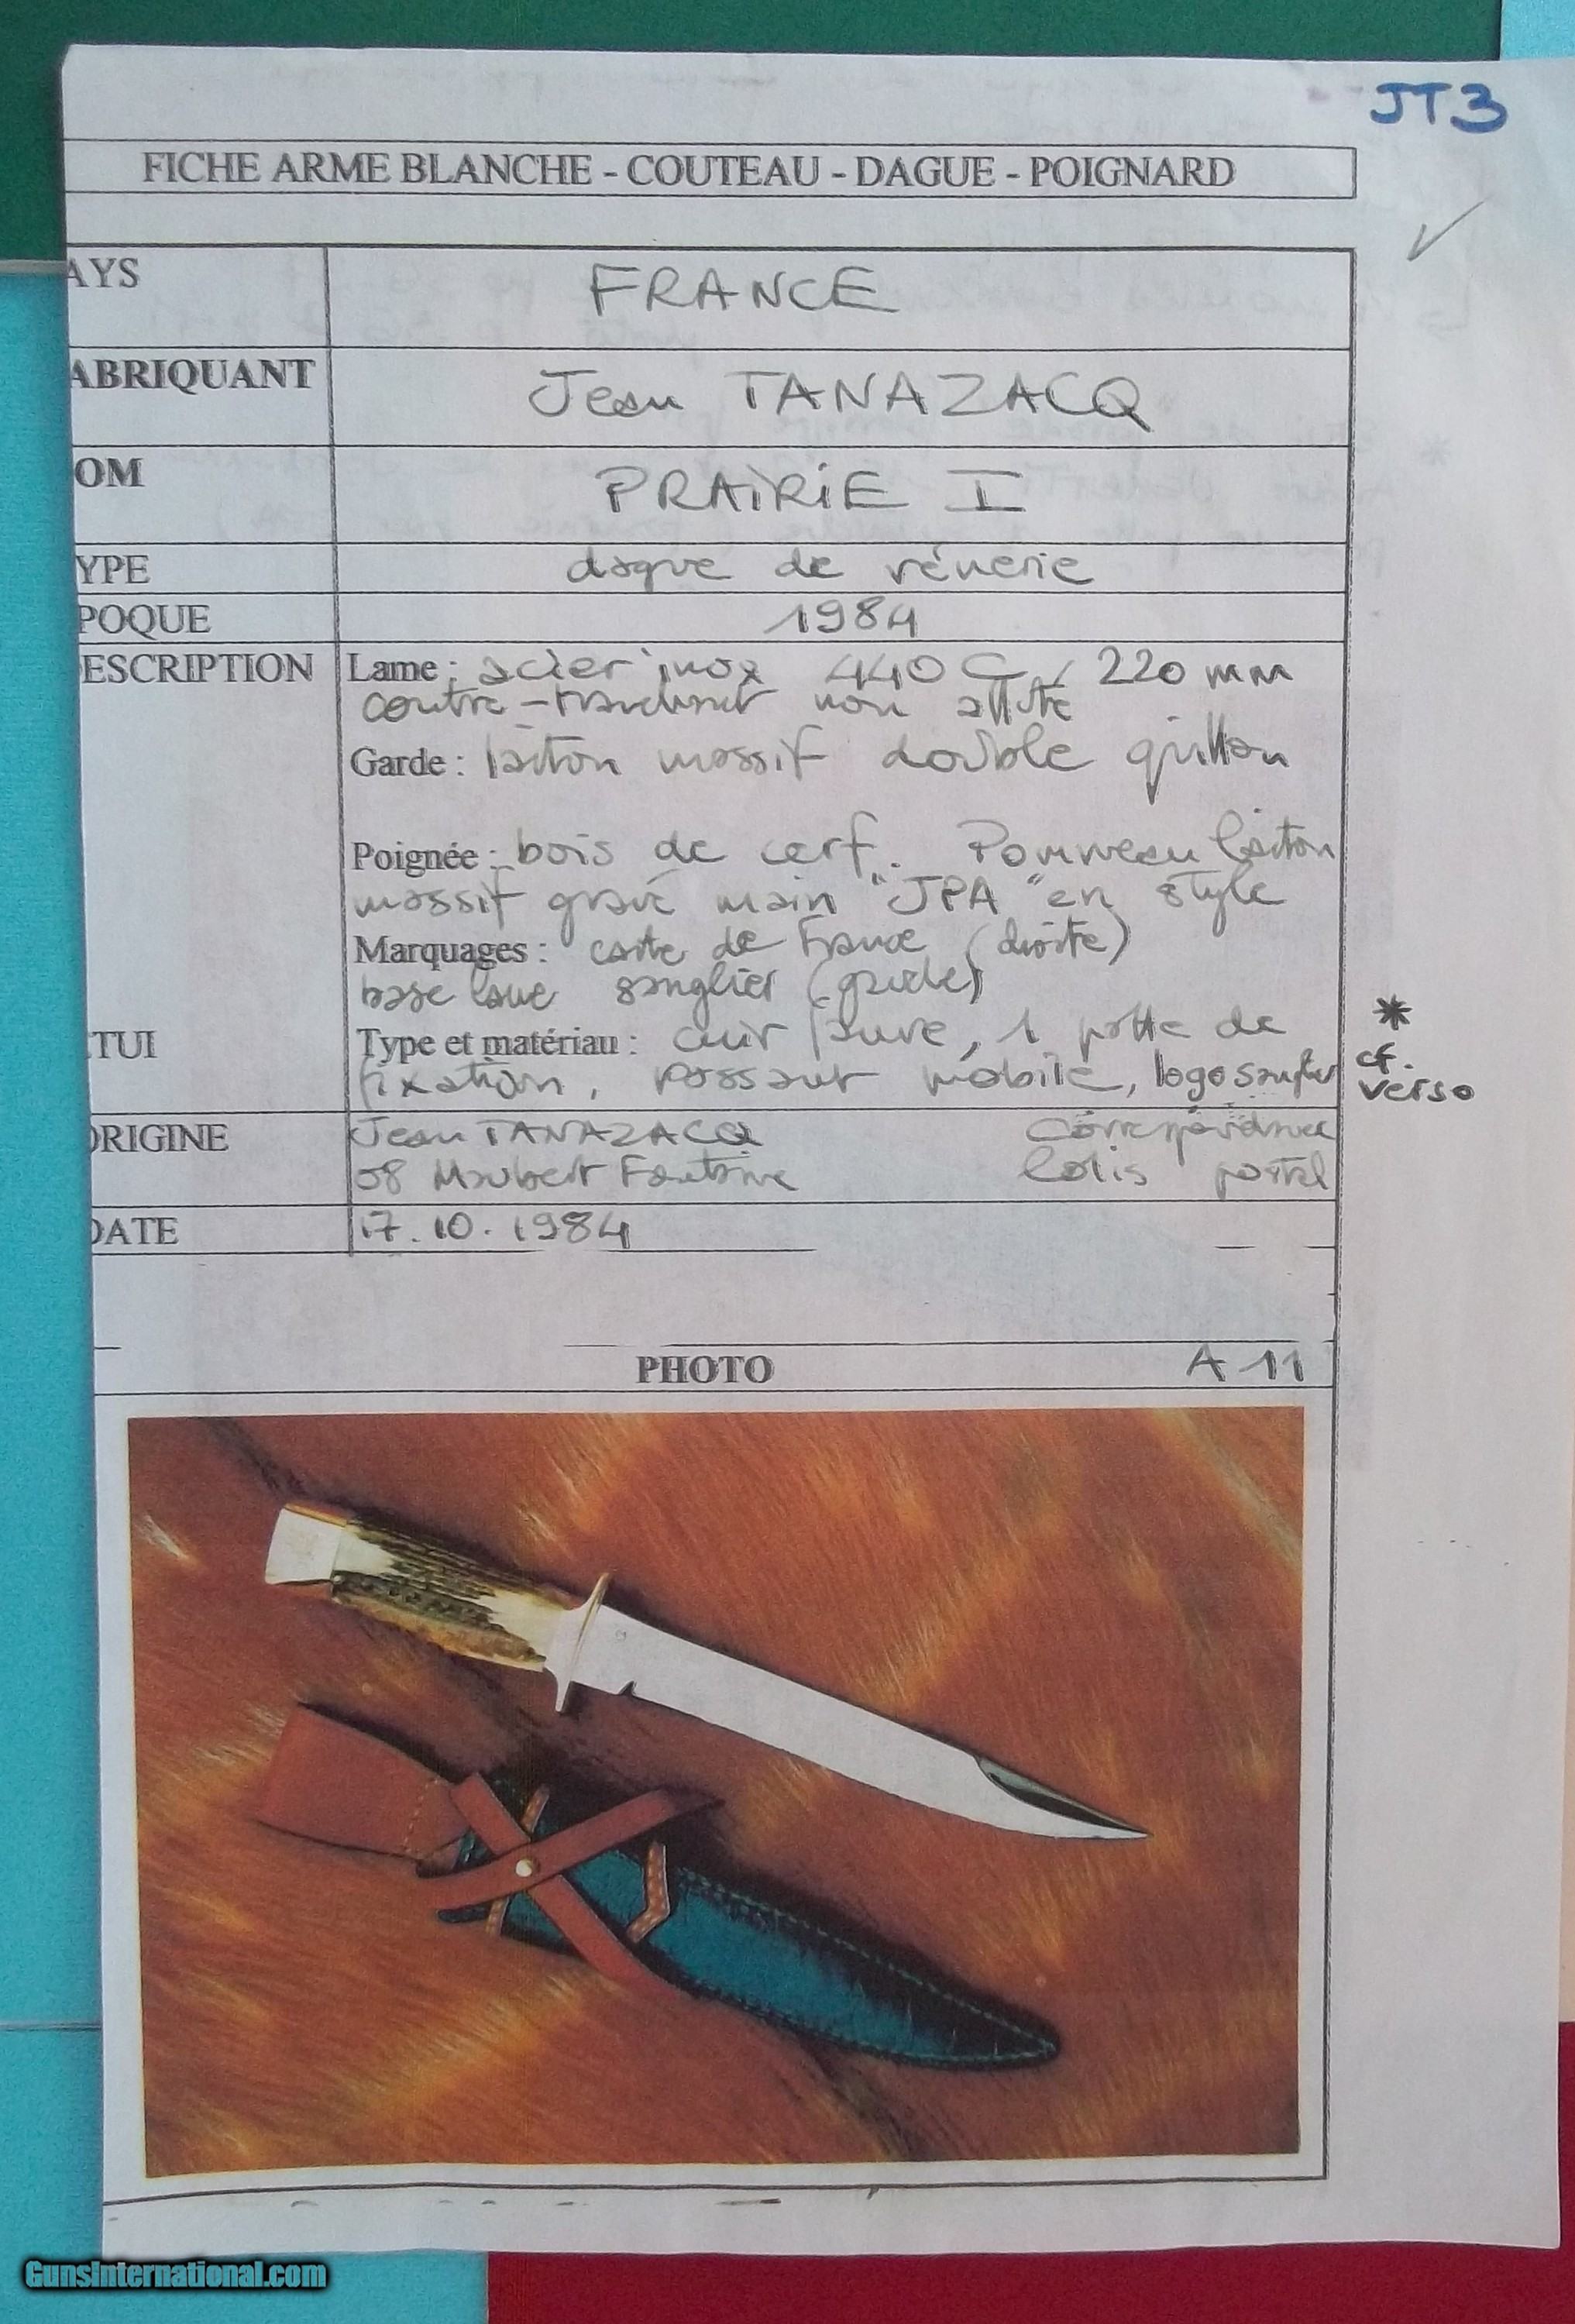 JT3
FICHE ARME BLANCHE - COUTEAU - DAGUE - POIGNARD
AYS FRANCE
ABRIQUANT Jean TANAZACQ
OM PRAIRIE I
YPE dague de vénerie
POQUE 1984
ESCRIPTION Lame : acier inox 440 C / 220 mm
contre-tranchant non affuté
Garde : laiton massif double quillon
Poignée : bois de cerf. Pommeau laiton
massif gravé main "JPA" en style
Marquages : carte de France (droite)
base lame sanglier (gauche)
TUI Type et matériau : cuir fauve, 1 patte de
fixation, passant mobile, logo sanglier
*
cf.
verso
ORIGINE Jean TANAZACQ Correspondance
08 Maubert Fontaine Colis postal
DATE 17.10.1984
PHOTO A 11
GunsInternational.com